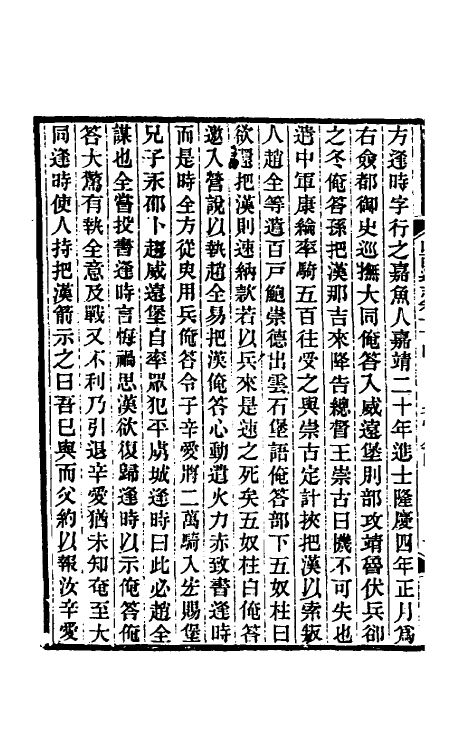 方逢時字行之嘉魚人嘉靖二十年進士隆慶四年正月爲
右僉都御史巡撫大同俺答入威遠堡別部攻靖魯伏兵卻
之冬俺答孫把漢那吉來降告總督王崇古曰機不可失也
遣中軍康綸率騎五百往受之與崇古定計挾把漢以索叛
人趙全等遣百戸鮑崇德出雲石堡語俺答部下五奴柱曰
欲還把漢則速納款若以兵來是速之死矣五奴柱白俺答
邀入營說以執趙全易把漢俺答心動遣火力赤致書逢時
而是時全方從臾用兵俺答令子辛愛將二萬騎入宏賜堡
兄子永邵卜趨威遠堡自率眾犯平虜城逢時曰此必趙全
謀也全嘗投書逢時言悔禍思漢欲復歸逢時以示俺答俺
答大驚有執全意及戰又不利乃引退辛愛猶未知奄至大
同逢時使人持把漢箭示之曰吾已與而父約以報汝辛愛